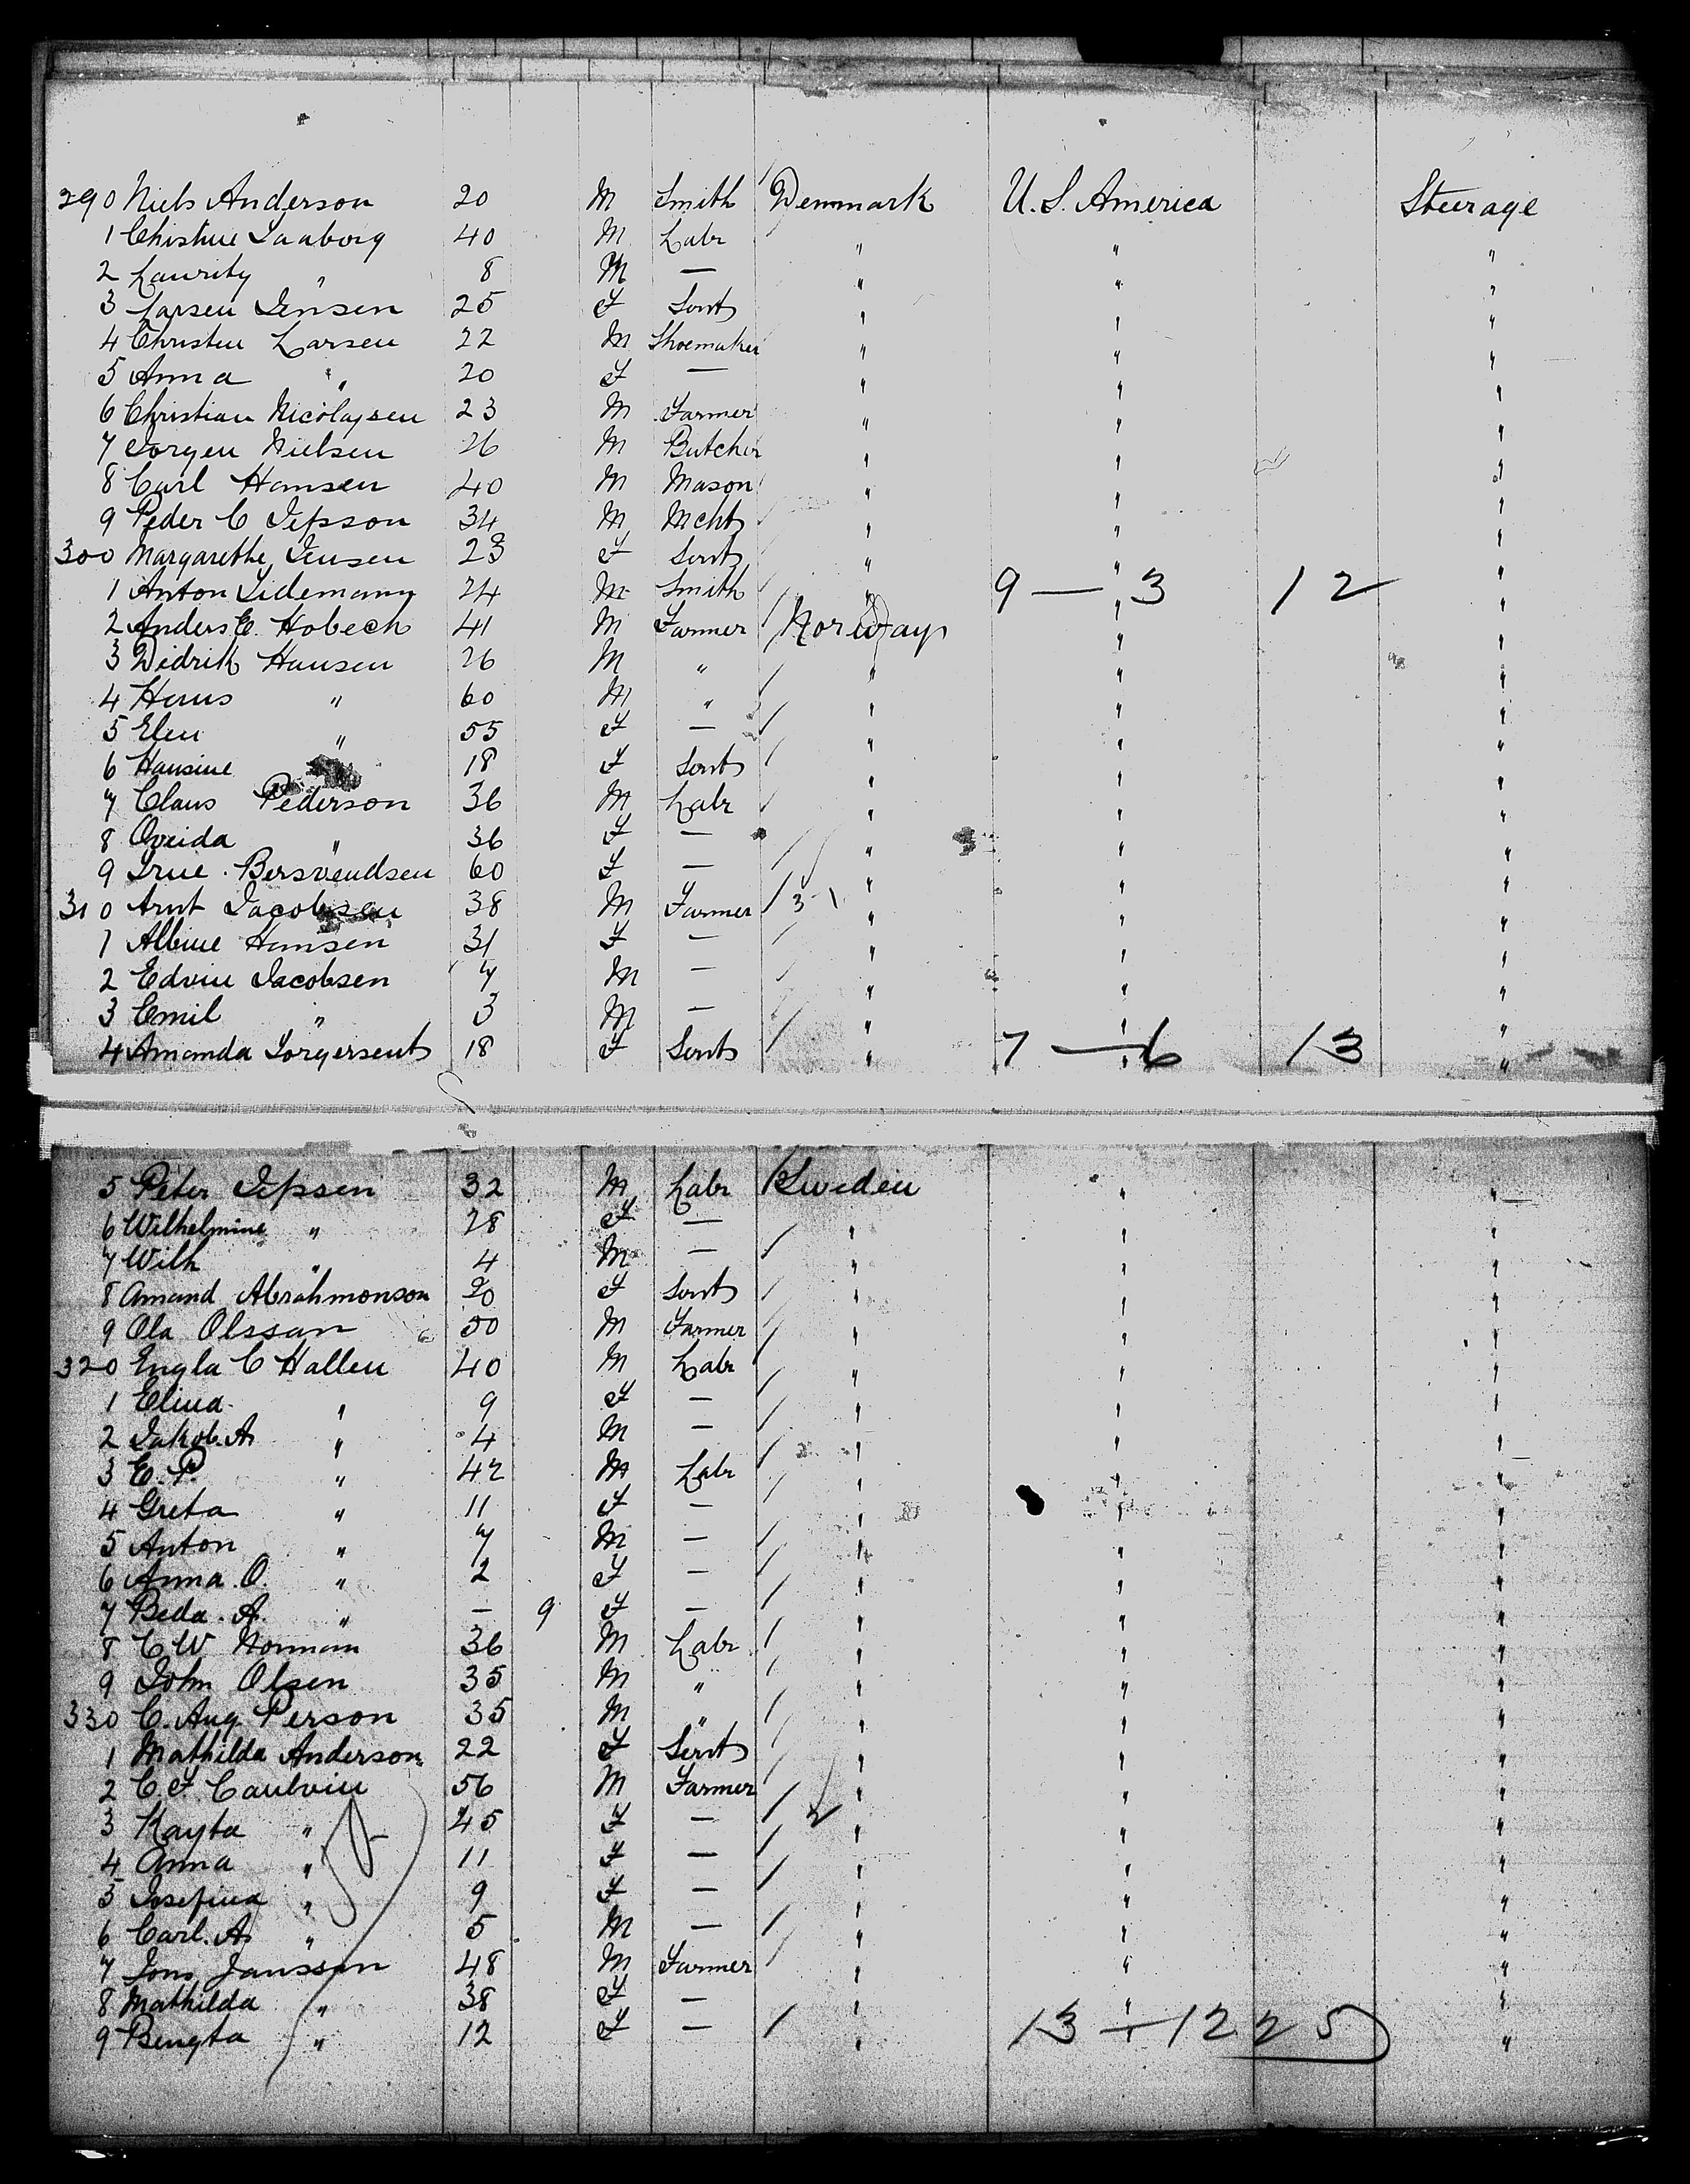 290 Niels Anderson 20 M Smith Denmark U.S. America Steerage
1 Christine Taaborg 40 M Labr " " "
2 Lauritz " 8 M — " " "
3 Larsen Jensen 25 F Sevt " " "
4 Christen Larsen 22 M Shoemaker " " "
5 Anna " 20 F — " " "
6 Christian Nicolaysen 23 M Farmer " " "
7 Jorgen Nielsen 26 M Butcher " " "
8 Carl Hansen 40 M Mason " " "
9 Peder C Jepson 34 M Mcht " " "
300 Margarethe Jensen 23 F Sevt " " "
1 Anton Tidemann 24 M Smith " 9 — 3 12 "
2 Anders E. Hobech 41 M Farmer Norway " "
3 Didrik Hansen 26 M " " " "
4 Hans " 60 M " " " "
5 Elen " 55 F — " " "
6 Hansine " 18 F Sevt " " "
7 Claus Pederson 36 M Labr " " "
8 Oveida " 36 F — " " "
9 Trine Bersvendsen 60 F — " " "
310 Arnt Jacobsen 38 M Farmer 3 " " "
1 Albine Hansen 31 F — " " "
2 Edvin Jacobsen 7 M — " " "
3 Emil " 3 M — " " "
4 Amanda Torgersen 18 F Sevt " 7 — 6 13 "
5 Peter Jepsen 32 M Labr Sweden " "
6 Wilhelmine " 28 F — " " "
7 Wilh " 4 M — " " "
8 Amand Abrahmonson 20 F Sevt " " "
9 Ola Olssan 50 M Farmer " " "
320 Engla C Hallen 40 M Labr " " "
1 Elina " 9 F — " " "
2 Jakob. A " 4 M — " " "
3 E. P. " 42 M Labr " " "
4 Greta " 11 F — " " "
5 Anton " 7 M — " " "
6 Anna. O. " 2 F — " " "
7 Beda. A. " — 9 F — " " "
8 C W Norman 36 M Labr " " "
9 John Olsen 35 M " " " "
330 C. Aug Person 35 M " " " "
1 Mathilda Anderson 22 F Sevt " " "
2 C. F. Caulvin 56 M Farmer " " "
3 Kayta " 45 F — 2 " " "
4 Anna " 11 F — " " "
5 Josefina " 9 F — " " "
6 Carl. A " 5 M — " " "
7 Jons Janssan 48 M Farmer " " "
8 Mathilda " 38 F — " " "
9 Bengta " 12 F — " 13 — 12 25 "